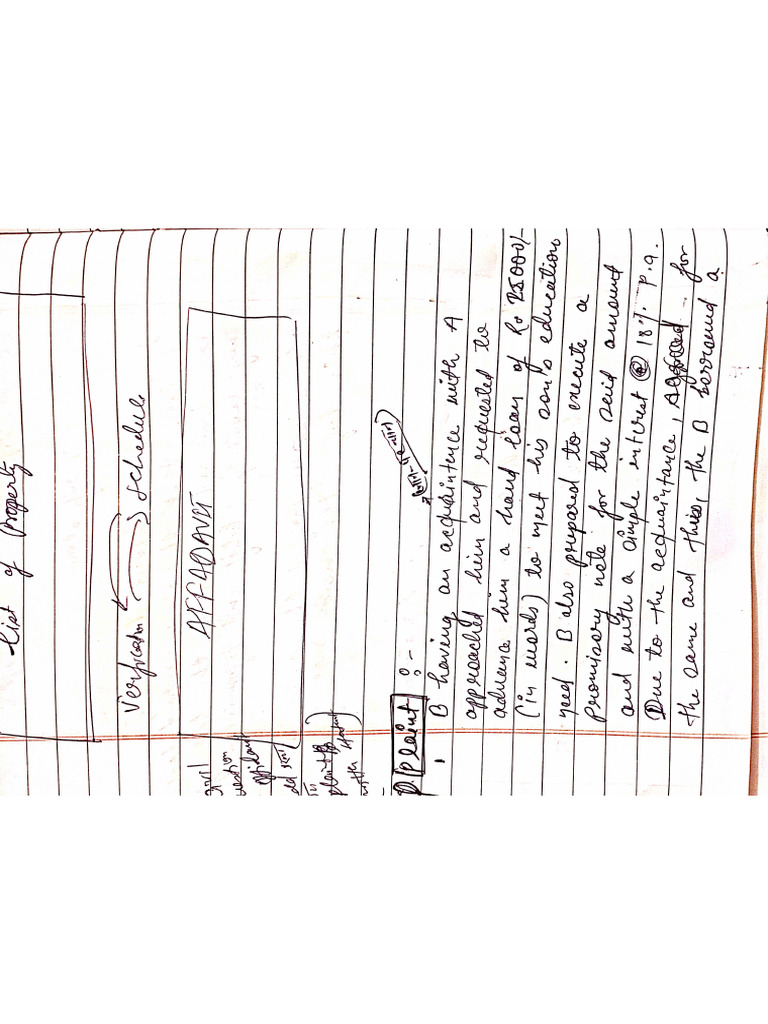 List of Property
Verification Schedule
AFFADAVIT
D. Plaint :-
B having an acquaintence with A
approached him and requested to
advance him a hand loan of Rs 25000/-
(in words) to meet his son's education
need. B also prepared to execute a
Promissory note for the said amount
and with a simple interest @ 18% p.a.
Due to the acquaintance, agreed for
the same and this, the B borrowed a